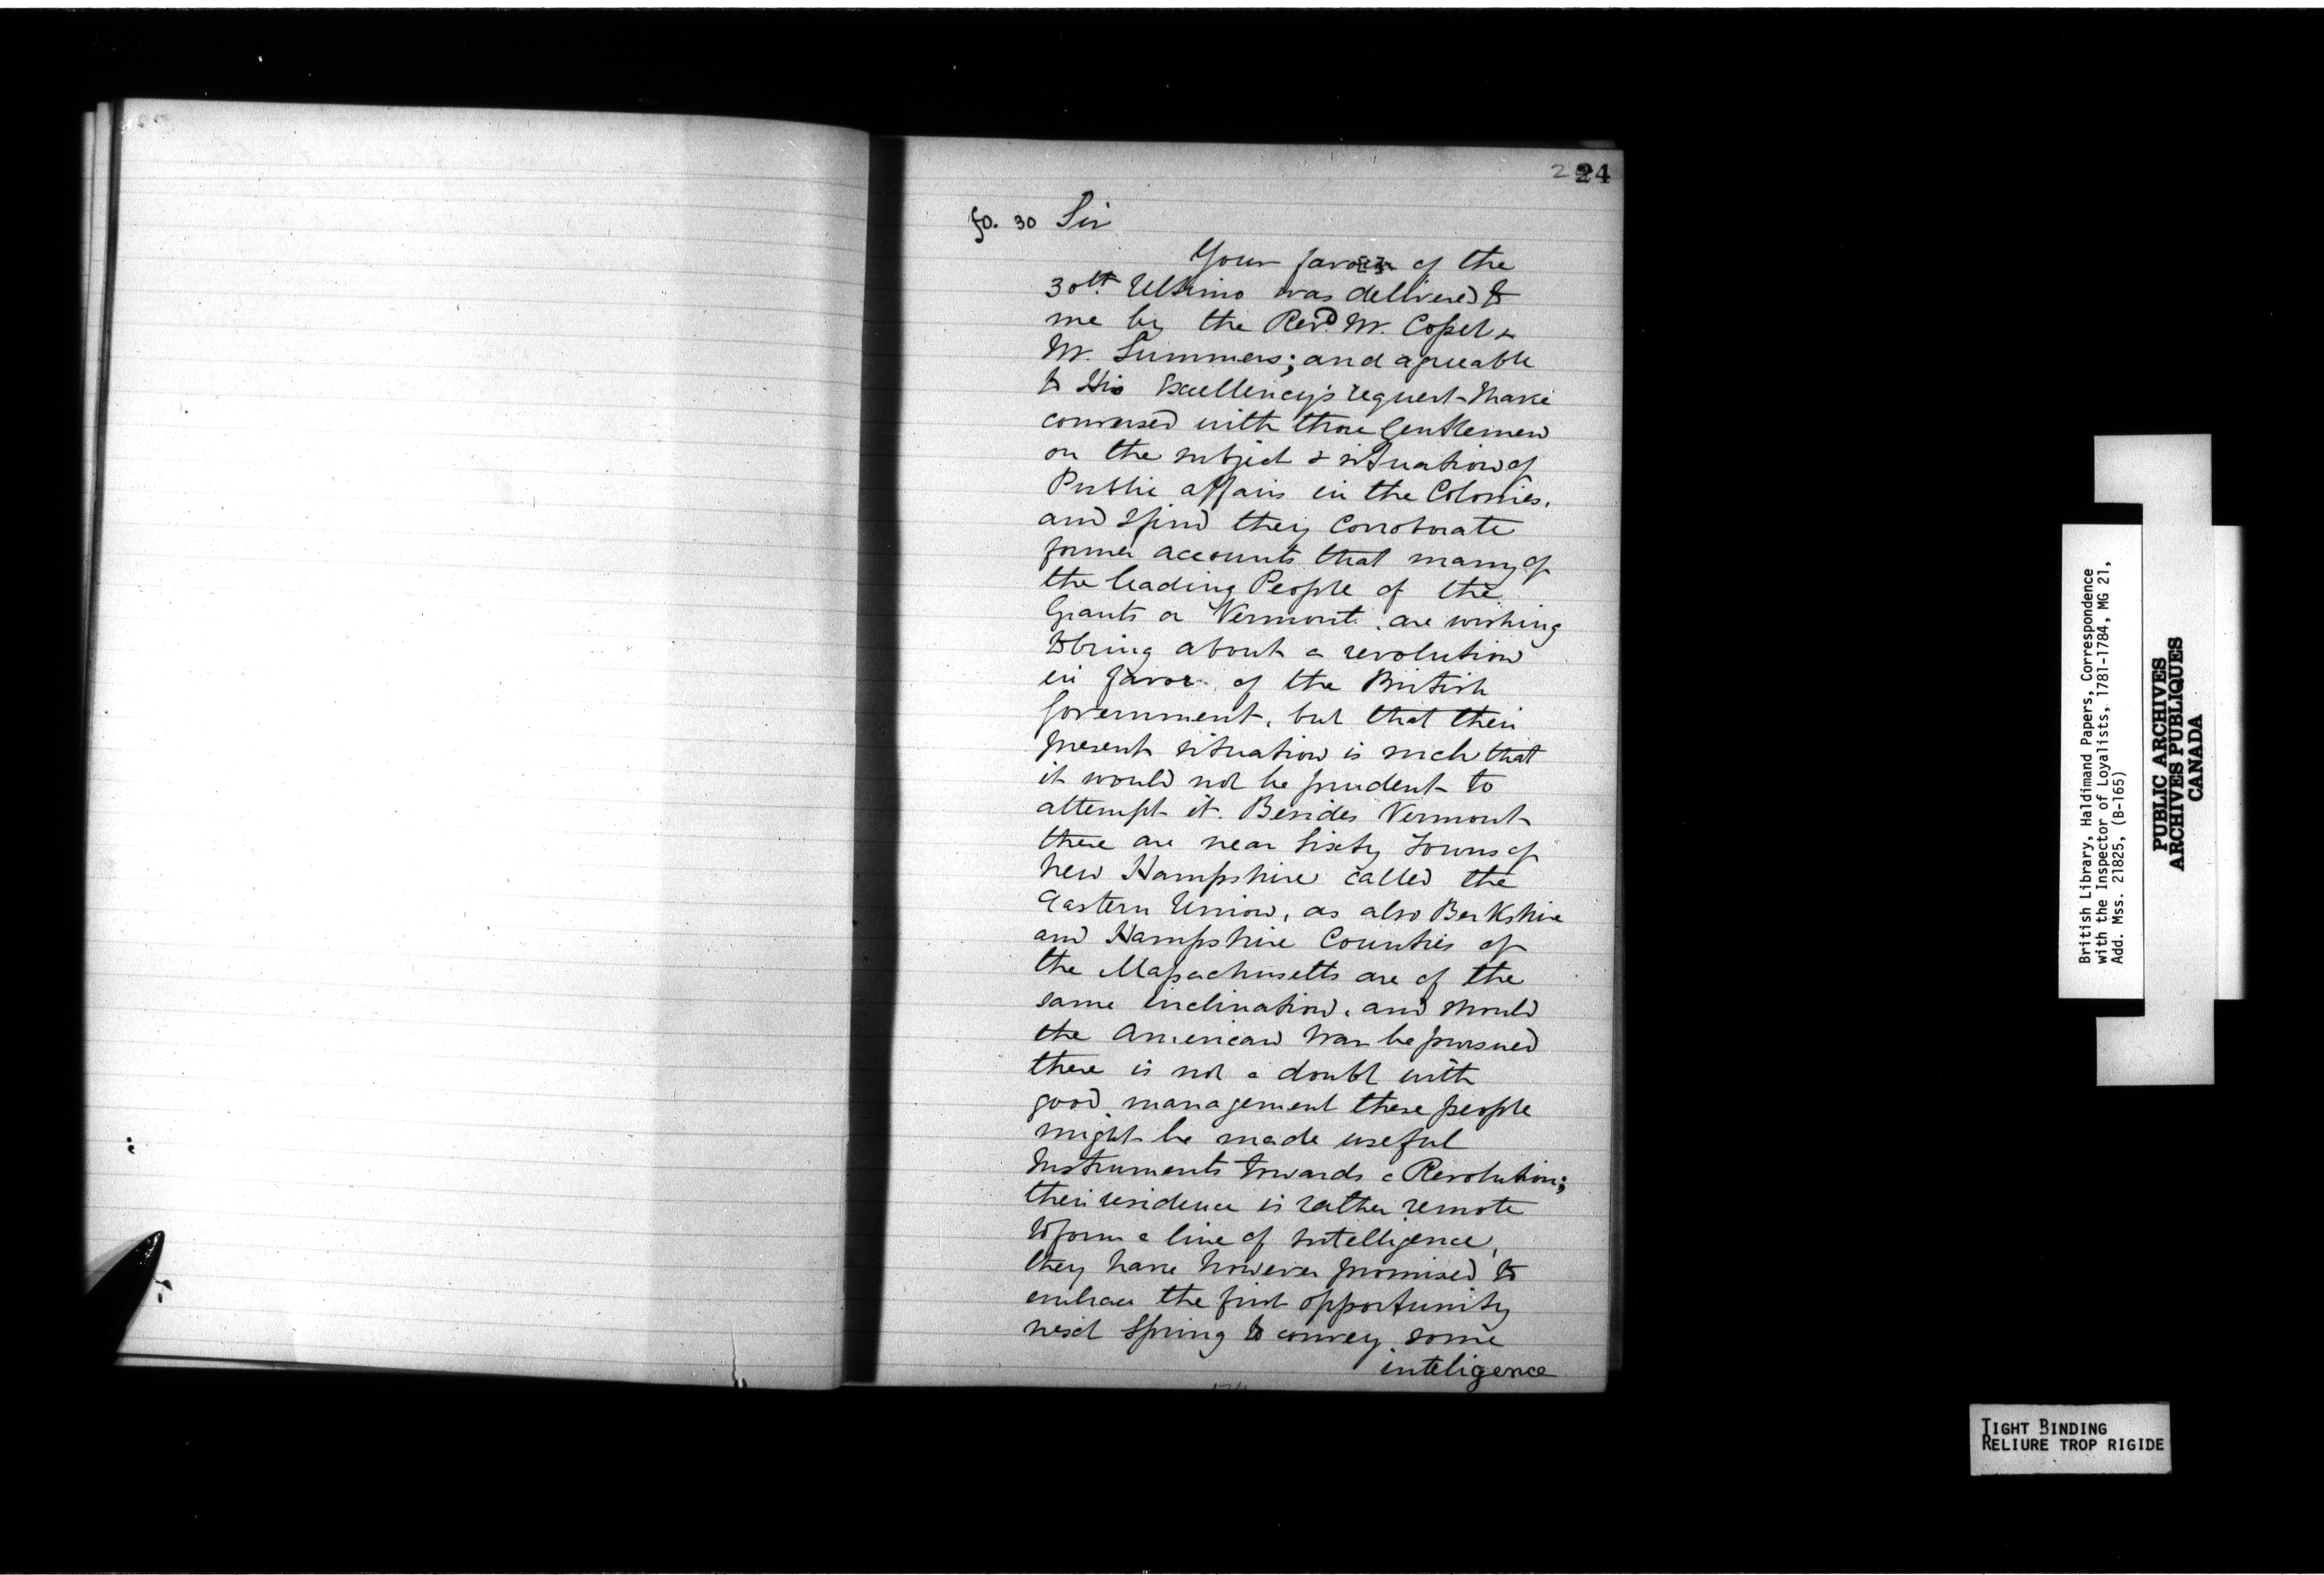 24
fo. 30 Sir
Your favor of the
30th Ultimo was delivered to
me by the Revd. Mr. Cossel &
Mr. Summers; and agreeable
to His Excellency's request I have
conversed with those Gentlemen
on the subject & situation of
Public affairs in the Colonies,
and I find they Corroborate
former accounts that many of
the leading People of the
Grants or Vermont, are wishing
to bring about a revolution
in favor of the British
Government, but that their
present situation is such that
it would not be prudent to
attempt it. Besides Vermont
there are near Sixty Towns of
New Hampshire called the
Eastern Union, as also Berkshire
and Hampshire Counties of
the Massachusetts are of the
same inclination, and should
the American War be pursued
there is not a doubt with
good management these people
might be made useful
Instruments towards a Revolution;
their residence is rather remote
to form a line of Intelligence,
they have however promised to
embrace the first opportunity
next Spring to convey some
inteligence
British Library, Haldimand Papers, Correspondence
with the Inspector of Loyalists, 1781-1784, MG 21,
Add. Mss. 21825, (B-165)
PUBLIC ARCHIVES
ARCHIVES PUBLIQUES
CANADA
TIGHT BINDING
RELIURE TROP RIGIDE